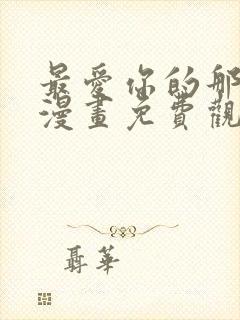 最愛你的那
漫畫免費觀
聶華